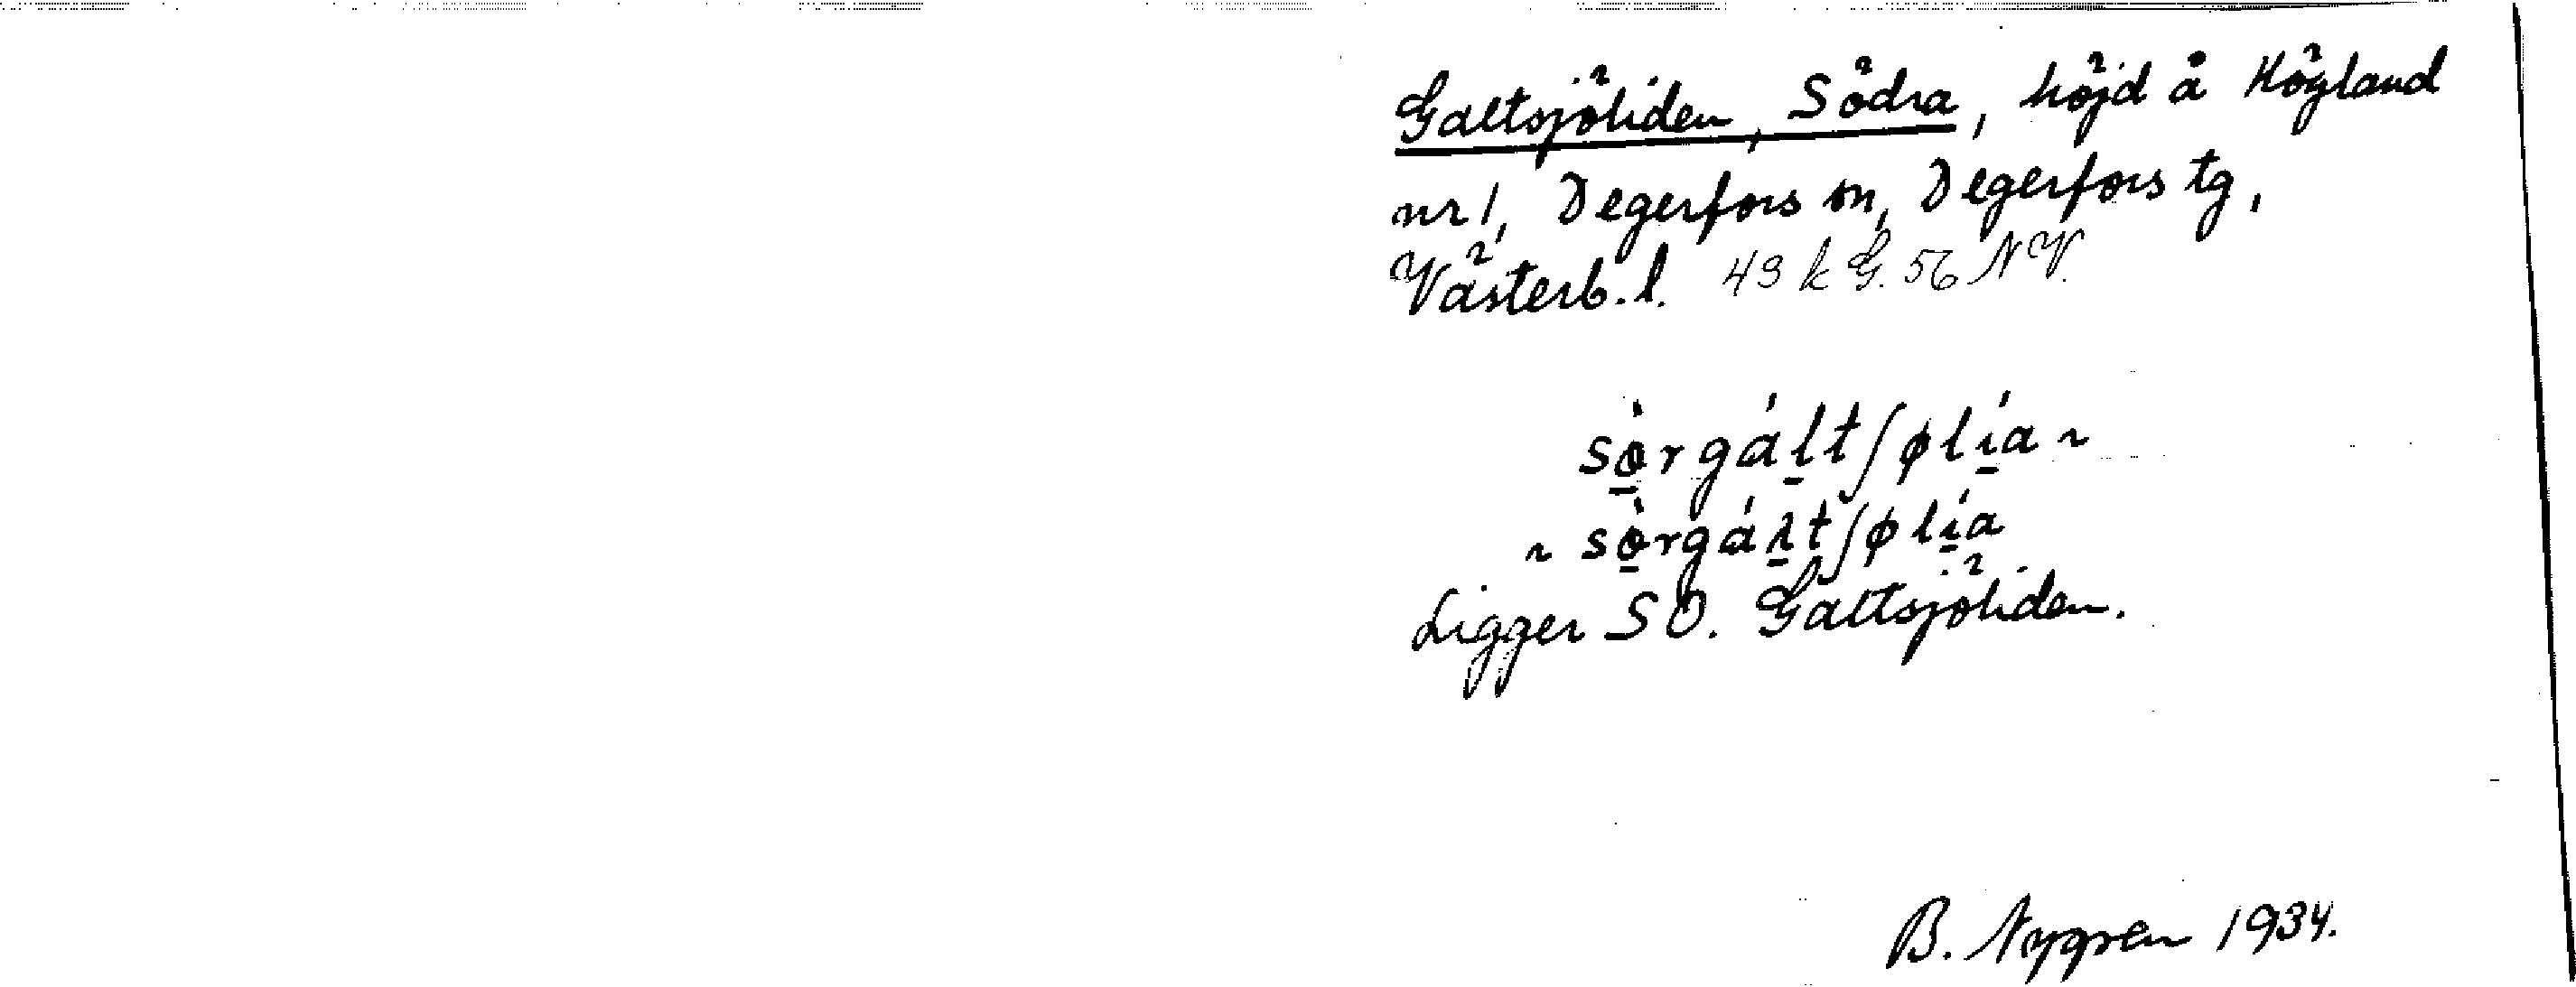 Galtsjöliden, Södra, höjd å Högland
nr 1, Degerfors sn, Degerfors tg,
Västerb. l. 43 k G. 56 NV.
sò̠rgált̠ʃφlí̠a ~
~ sò̠rgáɽ̠tʃφlí̠a
Ligger SO. Galtsjöliden.
B. Nygren 1934.